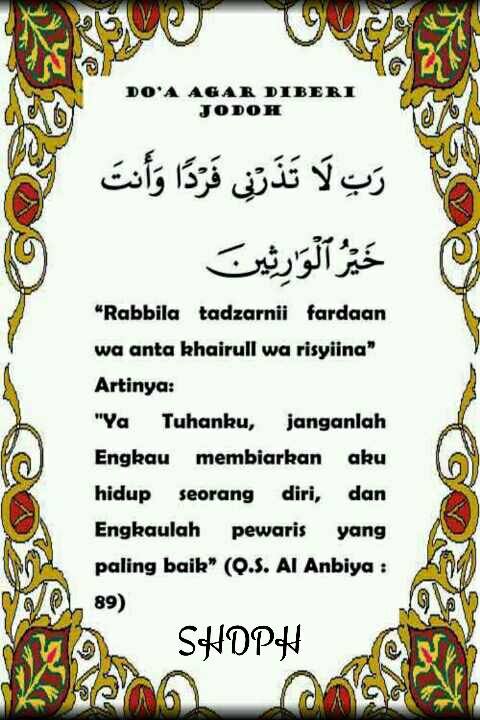 DO'A AGAR DIBERI
JODOH
رَبِّ لَا تَذَرْنِي فَرْدًا وَأَنتَ
خَيْرُ ٱلْوَٰرِثِينَ
“Rabbila tadzarnii fardaan
wa anta khairull wa risyiina”
Artinya:
"Ya Tuhanku, janganlah
Engkau membiarkan aku
hidup seorang diri, dan
Engkaulah pewaris yang
paling baik” (Q.S. Al Anbiya :
89)
SHDPH